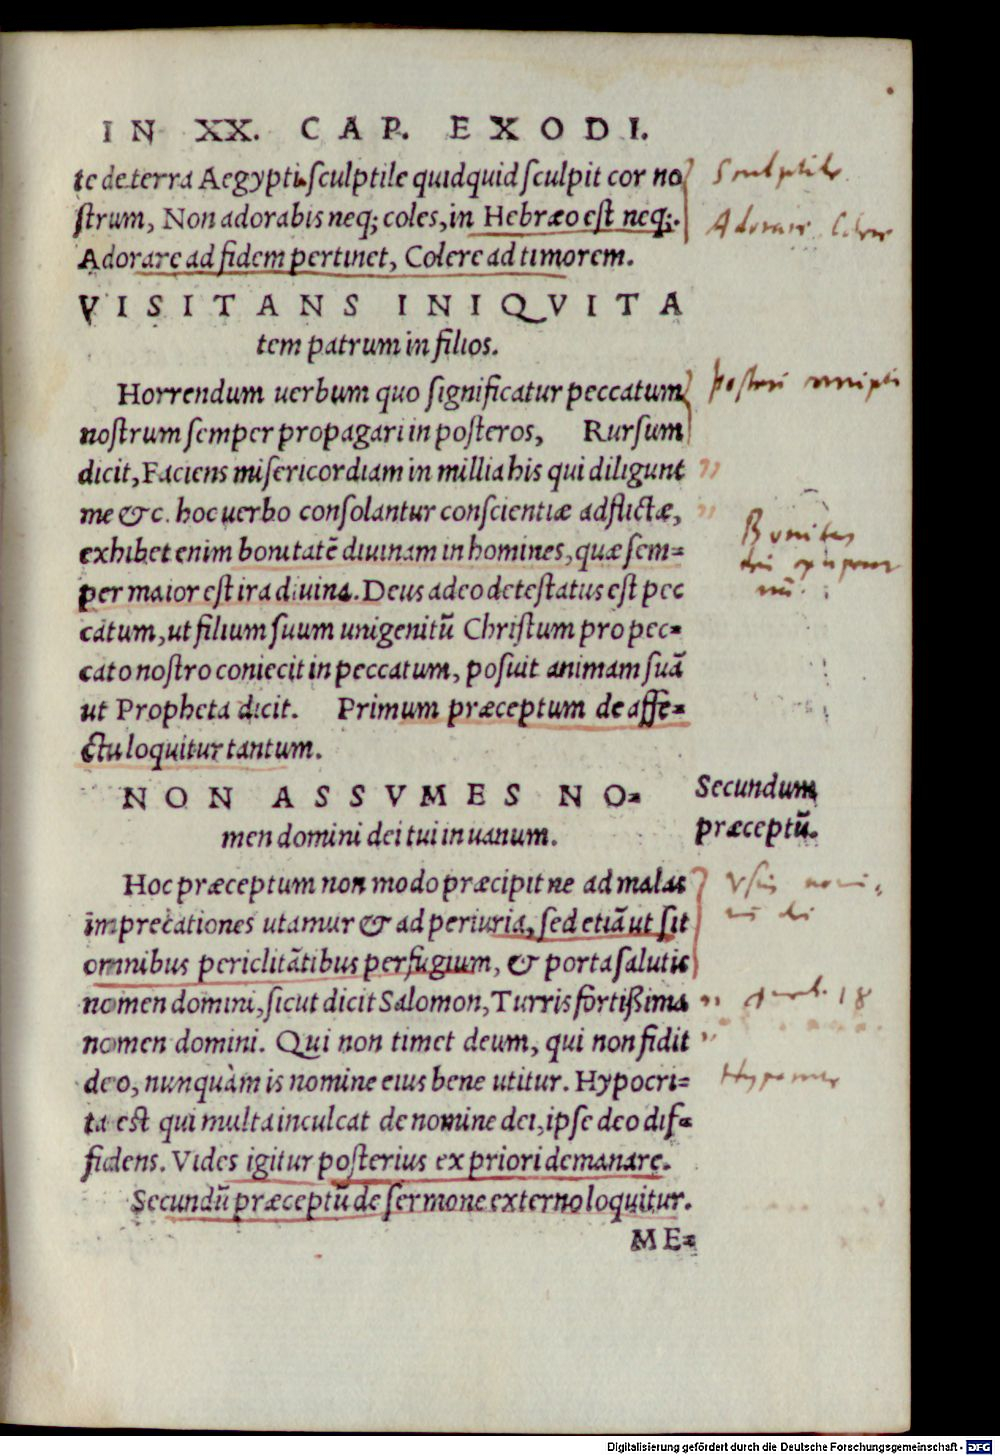 IN XX. CAP. EXODI.
te de terra Aegypti. sculptile quidquid sculpit cor no
strum, Non adorabis neq; coles, in Hebræo est neq;.
Adorare ad fidem pertinet, Colere ad timorem.
VISITANS INIQVITA
tem patrum in filios.
Horrendum uerbum quo significatur peccatum
nostrum semper propagari in posteros, Rursum
dicit, Faciens misericordiam in millia his qui diligunt
me &c. hoc uerbo consolantur conscientiæ adflictæ,
exhibet enim bonitatē diuinam in homines, quæ sem=
per maior est ira diuina. Deus adeo detestatus est pec
catum, ut filium suum unigenitū Christum pro pec=
cato nostro coniecit in peccatum, posuit animam suā
ut Propheta dicit. Primum præceptum de affe=
ctu loquitur tantum.
NON ASSVMES NO=
men domini dei tui in uanum.
Secundum
præceptū.
Hoc præceptum non modo præcipit ne ad malas
imprecationes utamur & ad periuria, sed etiā ut sit
omnibus periclitātibus perfugium, & porta salutis
nomen domini, sicut dicit Salomon, Turris fortißima
nomen domini. Qui non timet deum, qui non fidit
deo, nunquàm is nomine eius bene utitur. Hypocri=
ta est qui multa inculcat de nomine dei, ipse deo dif=
fidens. Vides igitur posterius ex priori demanare.
Secundū præceptū de sermone externo loquitur.
ME=
Sculptile
Adorare. Colere
posteri
Bonitas
18
Digitalisierung gefördert durch die Deutsche Forschungsgemeinschaft - DFG